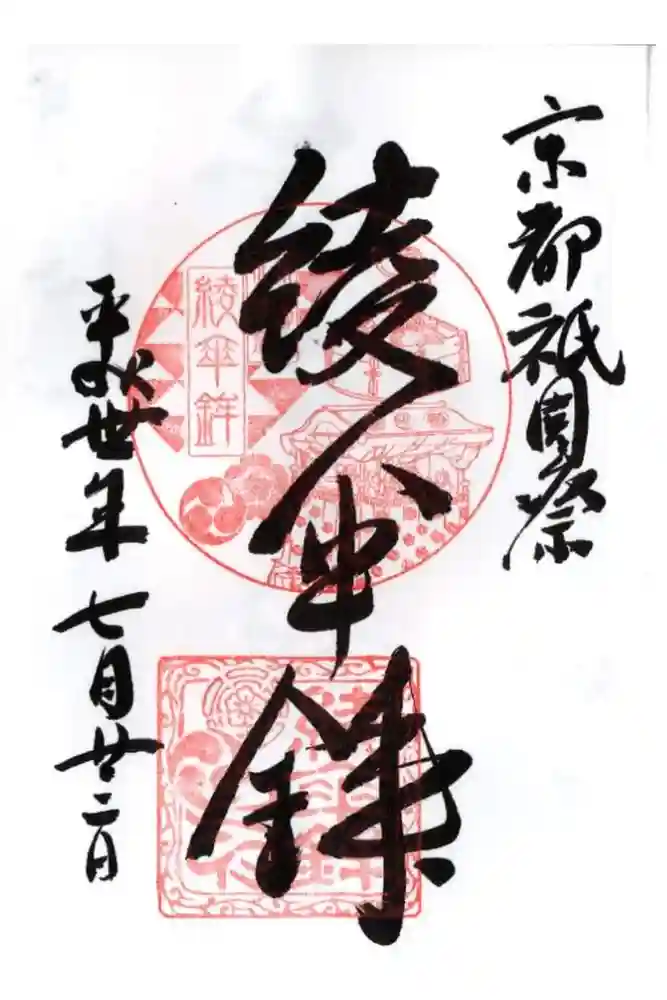 京都祇園祭
綾傘鉾
綾傘鉾
平成丗年七月廿二日